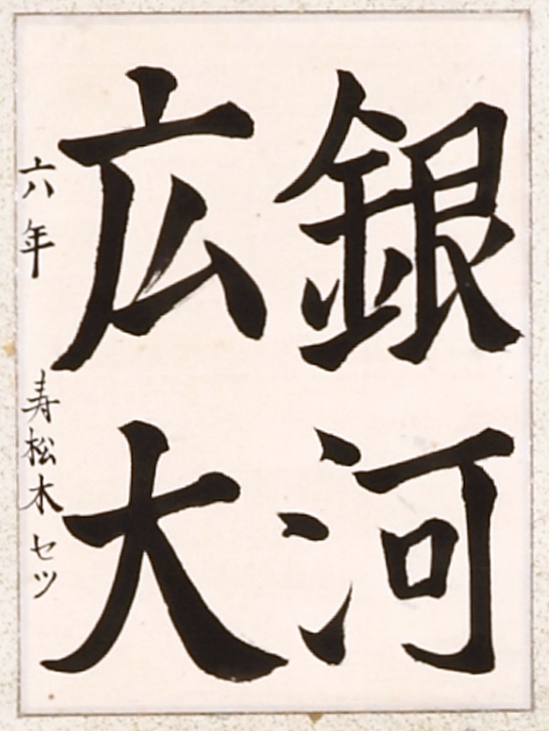 銀河
広大
六年 寿松木セツ